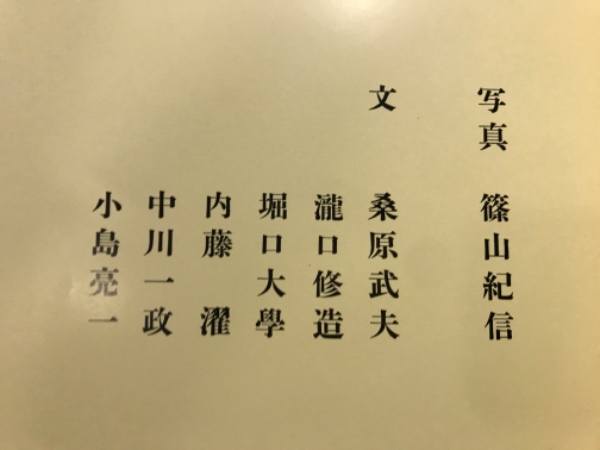 写真 篠山紀信
文 桑原武夫
瀧口修造
堀口大學
内藤 濯
中川一政
小島亮一